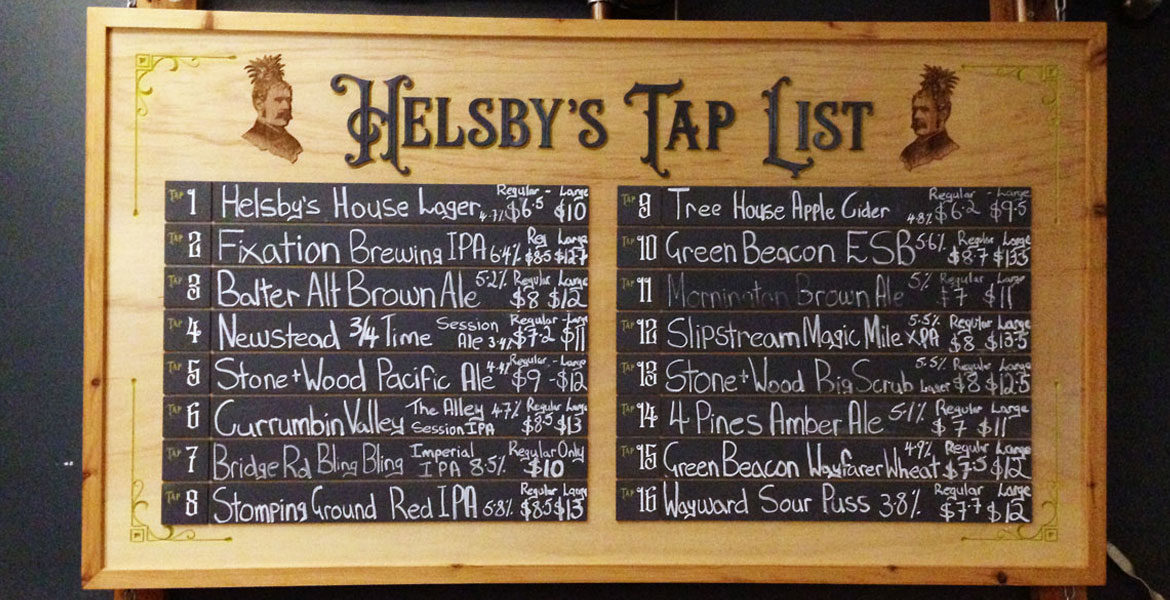 HELSBY'S TAP LIST
TAP 1 Helsby's House Lager 4.7% Regular - Large $6.5 $10
TAP 2 Fixation Brewing IPA 6.4% Reg Large $8.5 $12.7
TAP 3 Balter Alt Brown Ale 5.2% Regular Large $8 $12
TAP 4 Newstead 3/4 Time Session Ale 3.4% Regular - Large $7.2 $11
TAP 5 Stone + Wood Pacific Ale 4.4% Regular - Large $9 - $12
TAP 6 Currumbin Valley The Alley Session IPA 4.7% Regular Large $8.5 $13
TAP 7 Bridge Rd Bling Bling Imperial IPA 8.5% Regular Only $10
TAP 8 Stomping Ground Red IPA 5.8% Regular Large $8.5 $13
TAP 9 Tree House Apple Cider 4.8% Regular - Large $6.2 $9.5
TAP 10 Green Beacon ESB 5.6% Regular Large $8.7 $13.5
TAP 11 Mornington Brown Ale 5% Regular Large $7 $11
TAP 12 Slipstream Magic Mile XPA 5.5% Regular Large $8 $13.5
TAP 13 Stone + Wood Big Scrub Lager 5.5% Regular Large $8 $12.5
TAP 14 4 Pines Amber Ale 5.1% Regular Large $7 $11
TAP 15 Green Beacon Wayfarer Wheat 4.9% Regular Large $7.5 $12
TAP 16 Wayward Sour Puss 3.8% Regular Large $7.7 $12